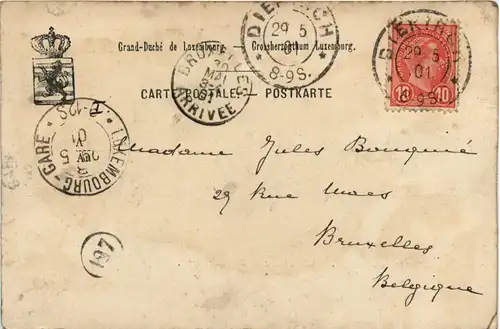 DIEKIRCH
29 5
8-9S.
DIEKIRCH
29 5
01
8-9S.
10 10
Grand-Duché de Luxembourg. Grossherzogthum Luxemburg.
BRUXELLES
MAI
ARRIVEE
CARTE POSTALE. — POSTKARTE
LUXEMBOURG-GARE
01
5
Madame Jules Bouquié
29 Rue
Bruxelles
Belgique